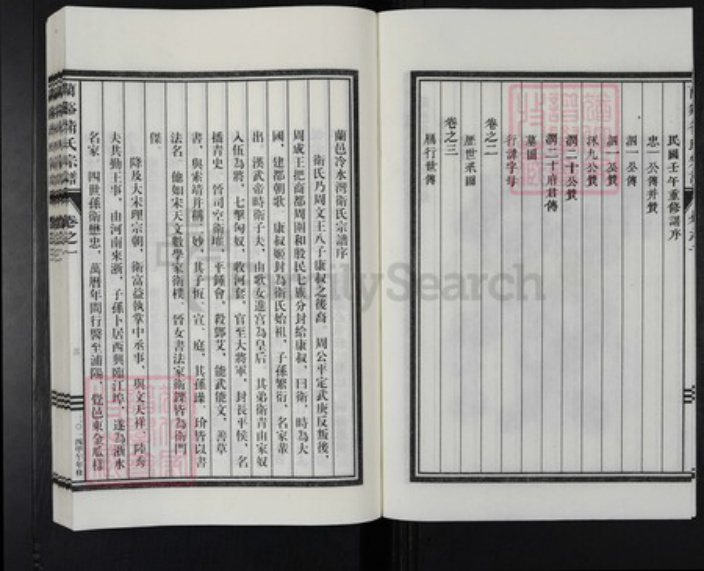 民國壬午重修譜序
忠一公傳并贊
潤一公傳
潤一公贊
珠九公贊
潤二十公贊
潤二十府君傳
墓圖
行諱字母
卷之二
歷世系圖
卷之三
鵬行世傳
蘭邑冷水灣衛氏宗譜序
衛氏乃周文王八子康叔之後裔 周公平定武庚反叛後、
周成王把商都周圍和殷民七族分封給康叔、曰衛、時為大
國、建都朝歌 康叔姬封為衛氏始祖、子孫繁衍、名家輩
出、漢武帝時衛子夫、由歌女進宮為皇后 其弟衛青由家奴
入伍為將、七擊匈奴、收河套、官至大將軍、封長平侯、名
播青史 晉司空衛瓘、平鍾會、殺鄧艾、能武能文、善草
書、與索靖并稱二妙、其子恆、宣、庭、其孫璪、玠皆以書
法名、他如宋天文數學家衛樸、晉女書法家衛鑠皆為衛門
傑
降及大宋理宗朝、衛富益執掌中丞事、與文天祥、陸秀
夫共勤王事、由河南來浙、子孫卜居西興臨江埠、遂為浙水
名家 四世孫衛懋忠、萬曆年間行醫至浦陽、覺邑東金瓜樣
蘭谿衛氏宗譜 卷之一
二〇一四甲午年修
FamilySearch